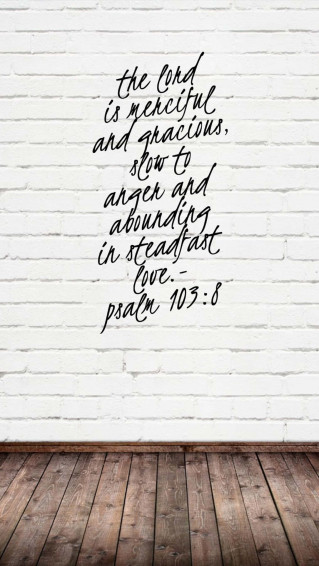 the lord
is merciful
and gracious,
slow to
anger and
abounding
in steadfast
love.-
psalm 103:8